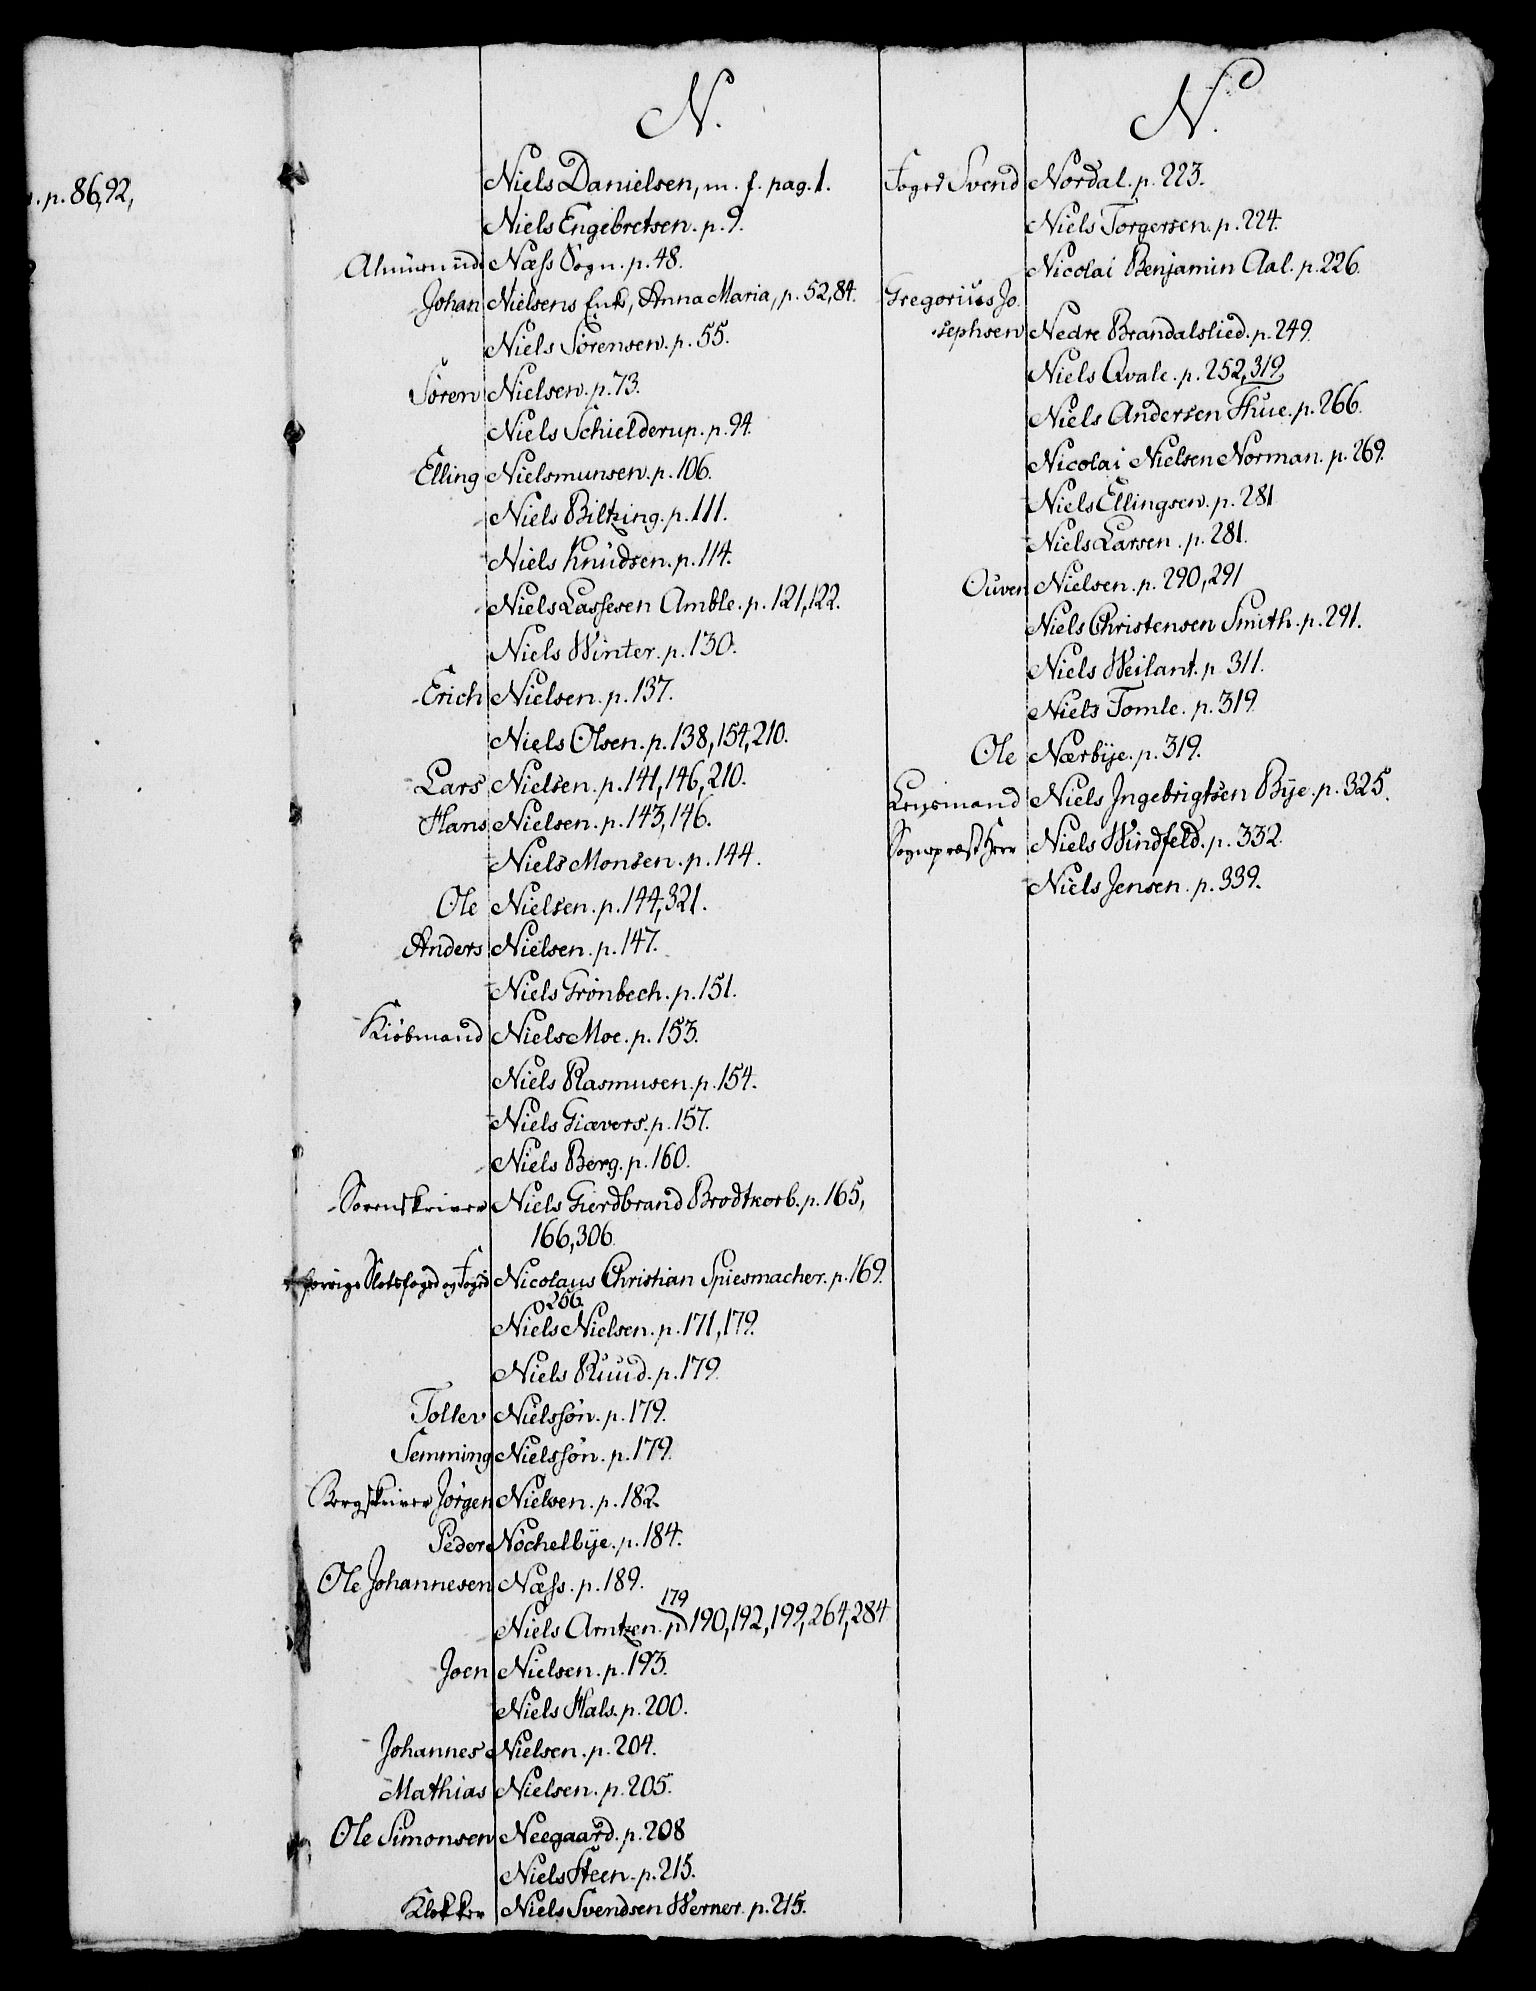 p. 86, 92,
N.
Niels Danielsen, m. f. pag. 1.
Niels Engebretsen. p. 9.
Næss Sogn. p. 48.
Johan Nielsens Enke, Anna Maria, p. 52, 84.
Niels Sørensen. p. 55.
Sören Nielsen. p. 73.
Niels Schielderup. p. 94.
Elling Nielsmunsen. p. 106.
Niels Biltzing. p. 111.
Niels Knudsen. p. 114.
Niels Lassesen Amble. p. 121, 122.
Niels Winter. p. 130.
Erich Nielsen. p. 137.
Niels Olsen. p. 138, 154, 210.
Lars Nielsen. p. 141, 146, 210.
Hans Nielsen. p. 143, 146.
Niels Monsen. p. 144.
Ole Nielsen. p. 144, 321.
Anders Nielsen. p. 147.
Niels Grönbech. p. 151.
Kiöbmand Niels Moe. p. 153.
Niels Rasmusen. p. 154.
Niels Giævers. p. 157.
Niels Berg. p. 160.
Sorenskriver Niels Gierdbrand Brodtkorb. p. 165,
166, 306.
forrige Slotsfoged og Foged Nicolaus Christian Spiesmacher. p. 169.
256.
Niels Nielsen. p. 171, 179.
Niels Ruud. p. 179.
Tollev Nielssön. p. 179.
Semming Nielssön. p. 179.
Bergskriver Jörgen Nielsen. p. 182.
Peder Nöchelbÿe. p. 184.
Ole Johannesen Næss. p. 189.
179
Niels Arntzen. p. 190, 192, 199, 264, 284
Joen Nielsen. p. 193.
Niels Hals. p. 200.
Johannes Nielsen. p. 204.
Mathias Nielsen. p. 205.
Ole Simonsen Neegaard. p. 208
Niels Steen. p. 215.
Klokker Niels Svendsen Werner. p. 215.
N.
Foged Svend Nordal. p. 223.
Niels Torgersen. p. 224.
Nicolai Benjamin Aal. p. 226.
Gregorius Jo-
sephsen Nedre Brandalslied. p. 249.
Niels Qvale. p. 252, 319.
Niels Andersen Hue. p. 266.
Nicolai Nielsen Norman. p. 269.
Niels Ellingsen. p. 281
Niels Larsen. p. 281.
Ouven Nielsen. p. 290, 291
Niels Christensen Smith. p. 291.
Niels Weilant. p. 311.
Niels Tomle. p. 319.
Ole Nærbÿe. p. 319.
Lensmand Niels Jngebrigtsen Bÿe. p. 325.
Sognepræst Herr Niels Windfeld. p. 332.
Niels Jensen. p. 339.